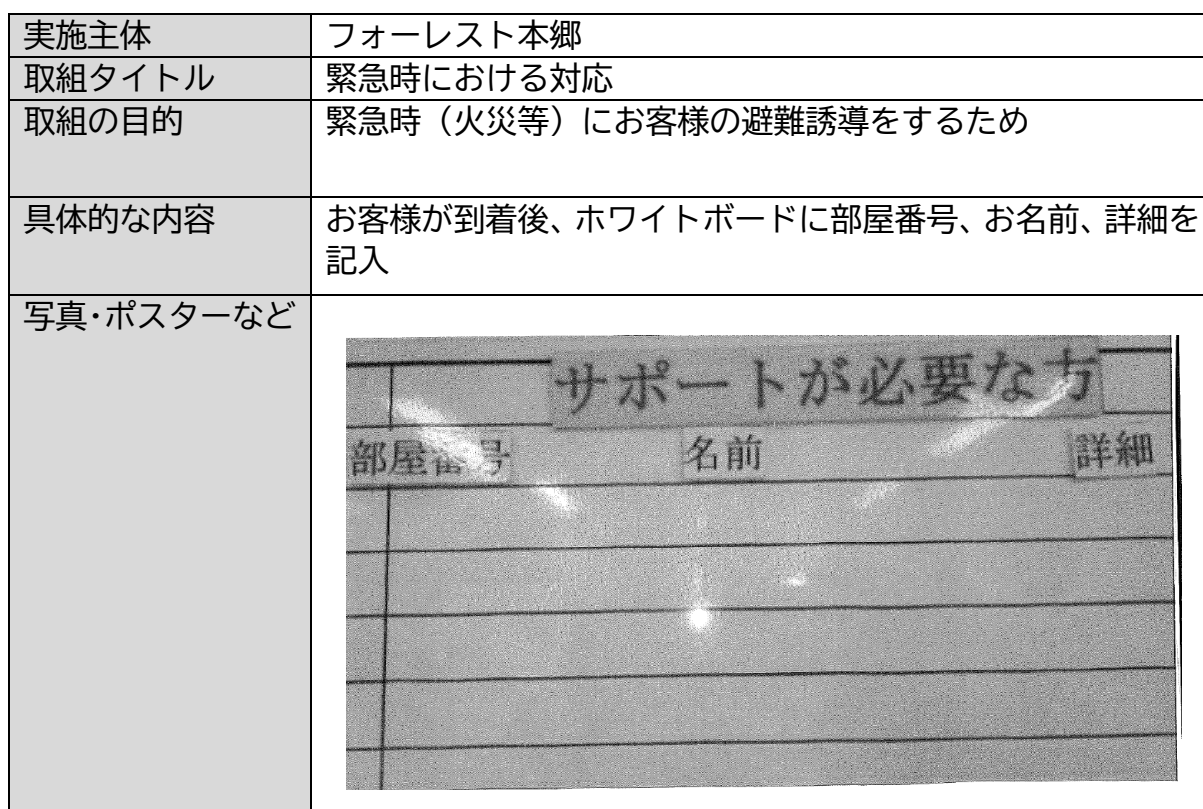 実施主体 フォーレスト本郷
取組タイトル 緊急時における対応
取組の目的 緊急時（火災等）にお客様の避難誘導をするため
具体的な内容 お客様が到着後、ホワイトボードに部屋番号、お名前、詳細を
記入
写真・ポスターなど
サポートが必要な方
部屋番号 名前 詳細